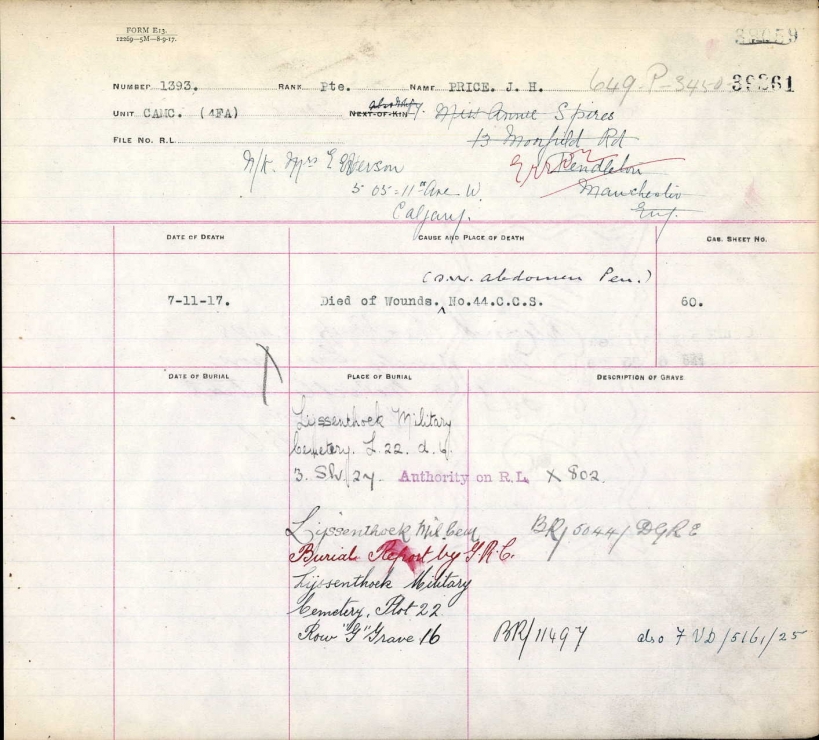 FORM E13.
12269—5M—8-9-17.
38059
NUMBER 1393. RANK Pte. NAME PRICE. J. H. 649-P-3450 39361
UNIT CAMC. (4FA) NEXT-OF-KIN Miss Annie Spires
FILE No. R.L. 13 Rd
Pendleton
N/K. Mrs E
505-11th Ave. W. Manchester
Calgary. Eng.
DATE OF DEATH CAUSE AND PLACE OF DEATH CAS. SHEET No.
(s.w. abdomen Pen.)
7-11-17. Died of Wounds. ^ No.44.C.C.S. 60.
DATE OF BURIAL PLACE OF BURIAL DESCRIPTION OF GRAVE
Lijssenthoek Military
Cemetery. L.22. d. 6.
3. Sh. 27. Authority on R.L. X 802.
Lijssenthoek Mil. Cem BR/5044/DGRE
Burial Report by G.R.C.
Lijssenthoek Military
Cemetery, Plot 22
Row "G" Grave 16 BR/11497 also 7 VD/5161/25